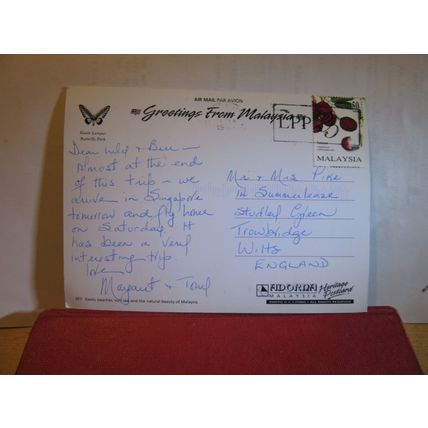 AIR MAIL PAR AVION
Greetings From Malaysia
Kuala Lumpur
Butterfly Park
LPP
MALAYSIA
Dear & Bill –
Almost at the end
of this trip – we
arrive in Singapore
tomorrow and fly home
on Saturday. It
has been a very
interesting trip.
love
Margaret & Tony
Mr & Mrs Pike
14 Summerleaze
Studley Green
Trowbridge
Wilts
ENGLAND
Exotic beaches, and the natural beauty of Malaysia.
ADORNA
MALAYSIA
Heritage
Postcard
ALL RIGHTS RESERVED